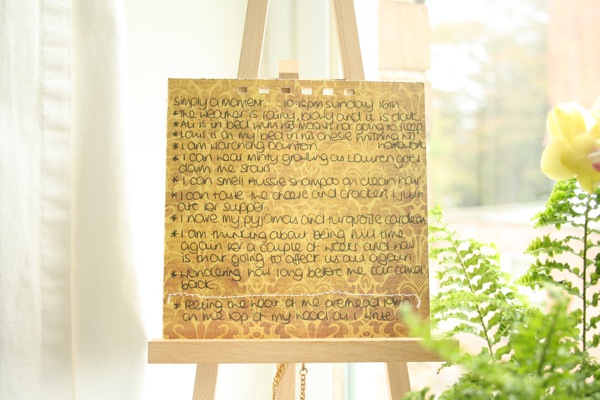 Simply a moment 10.15pm Sunday 16th
* The weather is rainy, blowy and it is dark
* Al is in bed with his not going to sleep
* Lauri is on my bed in his onesie finishing his homework
* I am watching Downton
* I can hear Minty growling as Lauren goes
down the stairs
* I can smell Aussie shampoo on clean hair
* I can taste the cheese and crackers I just
ate for supper
* I have my pyjamas and turquoise cardigan
* I am thinking about being full time
again for a couple of weeks and how
is that going to affect us all again
* Wondering how long before the car comes
back.
* Feeling the heat of the anglepoise lamp
on the top of my head as I write